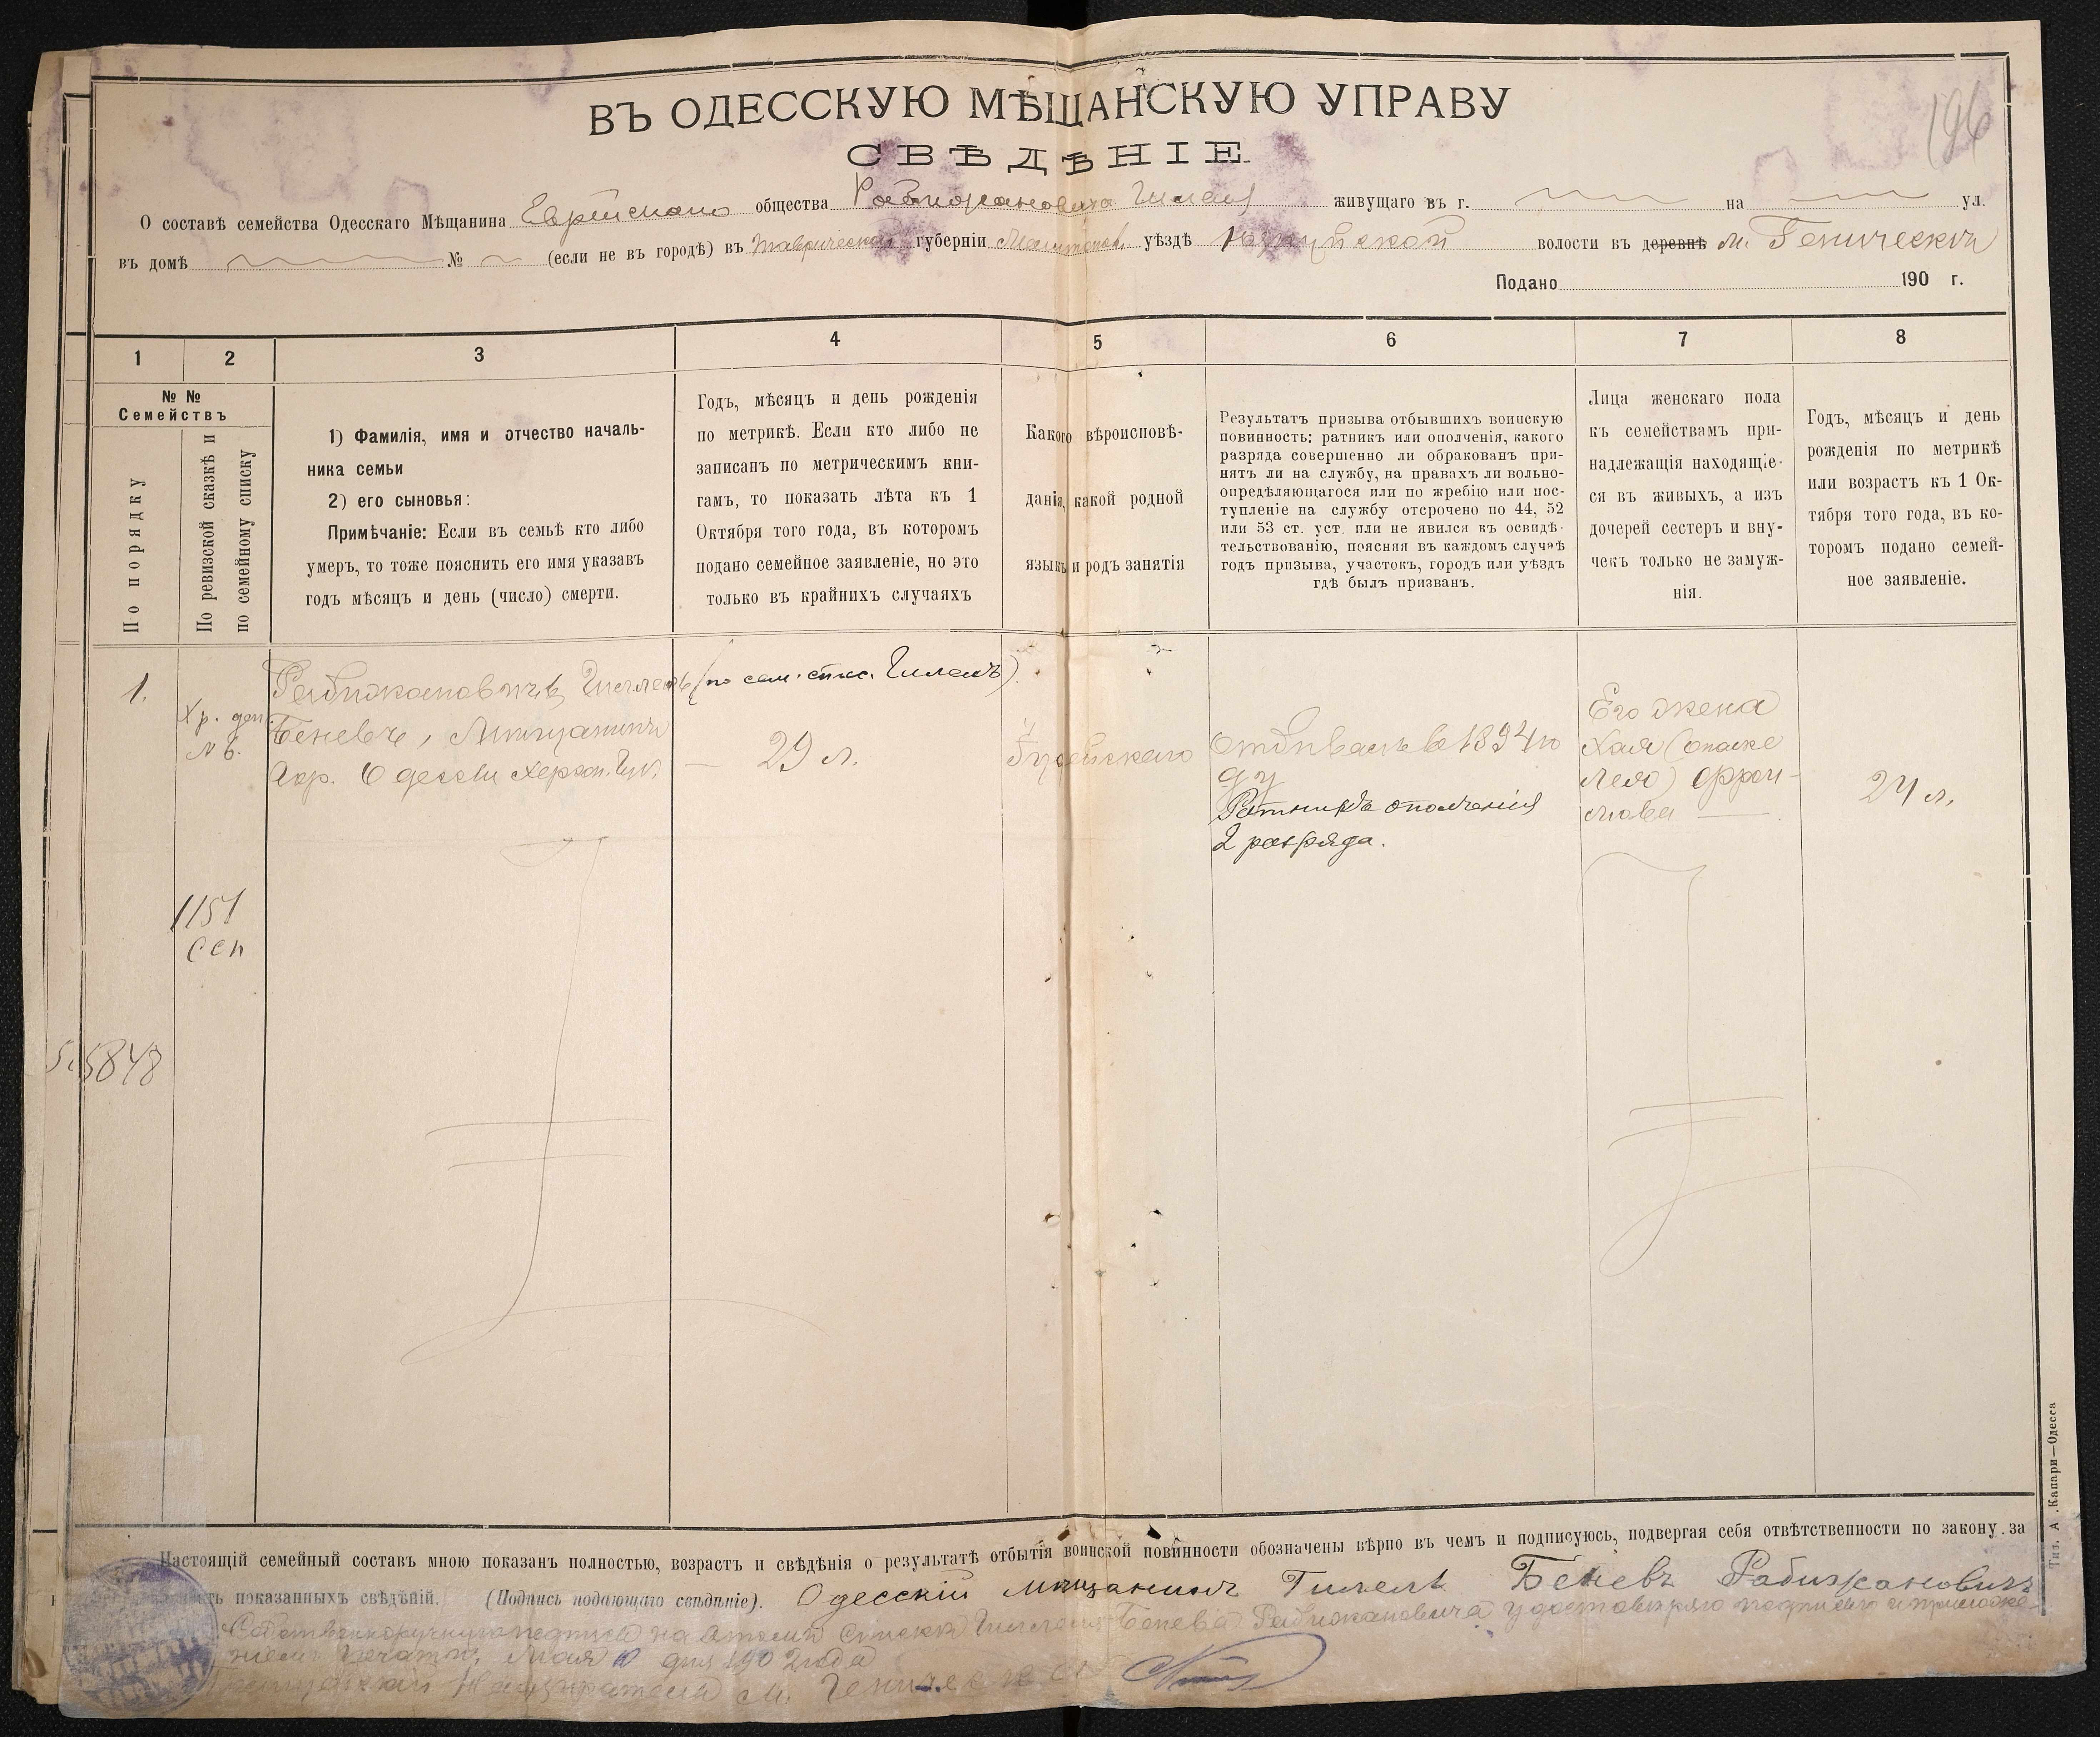 196
ВЪ ОДЕССКУЮ МѢЩАНСКУЮ УПРАВУ
СВѢДѢНІЕ
О составѣ семейства Одесскаго Мѣщанина Еврейскаго общества Рабижановича Гилеля живущаго въ г. на ул.
въ домѣ № (если не въ городѣ) въ Таврической губерніи Мелитопов. уѣздѣ волости въ деревнѣ м. Геническѣ
Подано 190 г.
1 2 3 4 5 6 7 8
№ №
Семействъ
По порядку
По ревизской сказкѣ и
по семейному списку
1) Фамилія, имя и отчество началь-
ника семьи
2) его сыновья:
Примѣчаніе: Если въ семьѣ кто либо
умеръ, то тоже пояснить его имя указавъ
годъ мѣсяцъ и день (число) смерти.
Годъ, мѣсяцъ и день рожденія
по метрикѣ. Если кто либо не
записанъ по метрическимъ кни-
гамъ, то показать лѣта къ 1
Октября того года, въ которомъ
подано семейное заявленіе, но это
только въ крайнихъ случаяхъ
Какого вѣроисповѣ-
данія, какой родной
языкъ и родъ занятія
Результатъ призыва отбывшихъ воинскую
повинность: ратникъ или ополченія, какого
разряда совершенно ли обракованъ при-
нятъ ли на службу, на правахъ ли вольно-
опредѣляющагося или по жребію или пос-
тупленіе на службу отсрочено по 44, 52
или 53 ст. уст. или не явился къ освидѣ-
тельствованію, поясняя въ каждомъ случаѣ
годъ призыва, участокъ, городъ или уѣздъ
гдѣ былъ призванъ.
Лица женскаго пола
къ семействамъ при-
надлежащія находящіе-
ся въ живыхъ, а изъ
дочерей сестеръ и вну-
чекъ только не замуж-
нія.
Годъ, мѣсяцъ и день
рожденія по метрикѣ
или возрастъ къ 1 Ок-
тября того года, въ ко-
торомъ подано семей-
ное заявленіе.
1.
Хр. доп.
№ 6.
Рабижановичъ Гилель (по сем. спис. Гилель)
Беневъ, Мѣщанинъ
гор. Одессы Херсон. Губ.
29 л.
Еврейскаго
Отбывалъ въ 1894 го
ду
Ратникъ ополченія
2 разряда.
Его жена
Хая (она же
Лея) Фрои-
мова
24 л.
1151
сеп
5848
Настоящій семейный составъ мною показанъ полностью, возрастъ и свѣдѣнія о результатѣ отбытія воинской повинности обозначены вѣрно въ чемъ и подписуюсь, подвергая себя отвѣтственности по закону за
показанныхъ свѣдѣній. (Подпись подающаго свѣдѣніе). Одесскій мѣщанинъ Гилель Беневъ Рабижановичъ
Собственноручную подпись на этомъ списки Гилеля Бенева Рабижановича удостовѣряю подписью и приложе-
ніемъ печати, Мая дня 1902 года
м. Геническа
Тип. А. Капари—Одесса